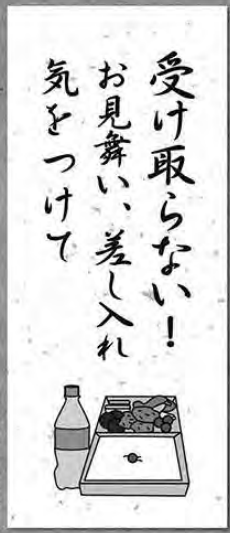 受け取らない！
お見舞い、差し入れ
気をつけて